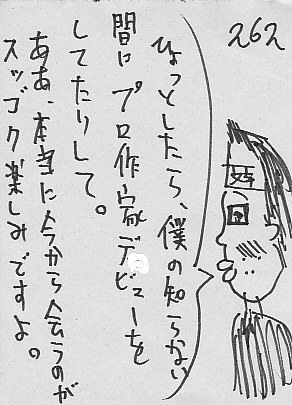 262
ひょっとしたら、僕の知らない
間に プロ作家デビューを
してたりして。
ああ、本当に今から会うのが
スッゴク楽しみですよ。